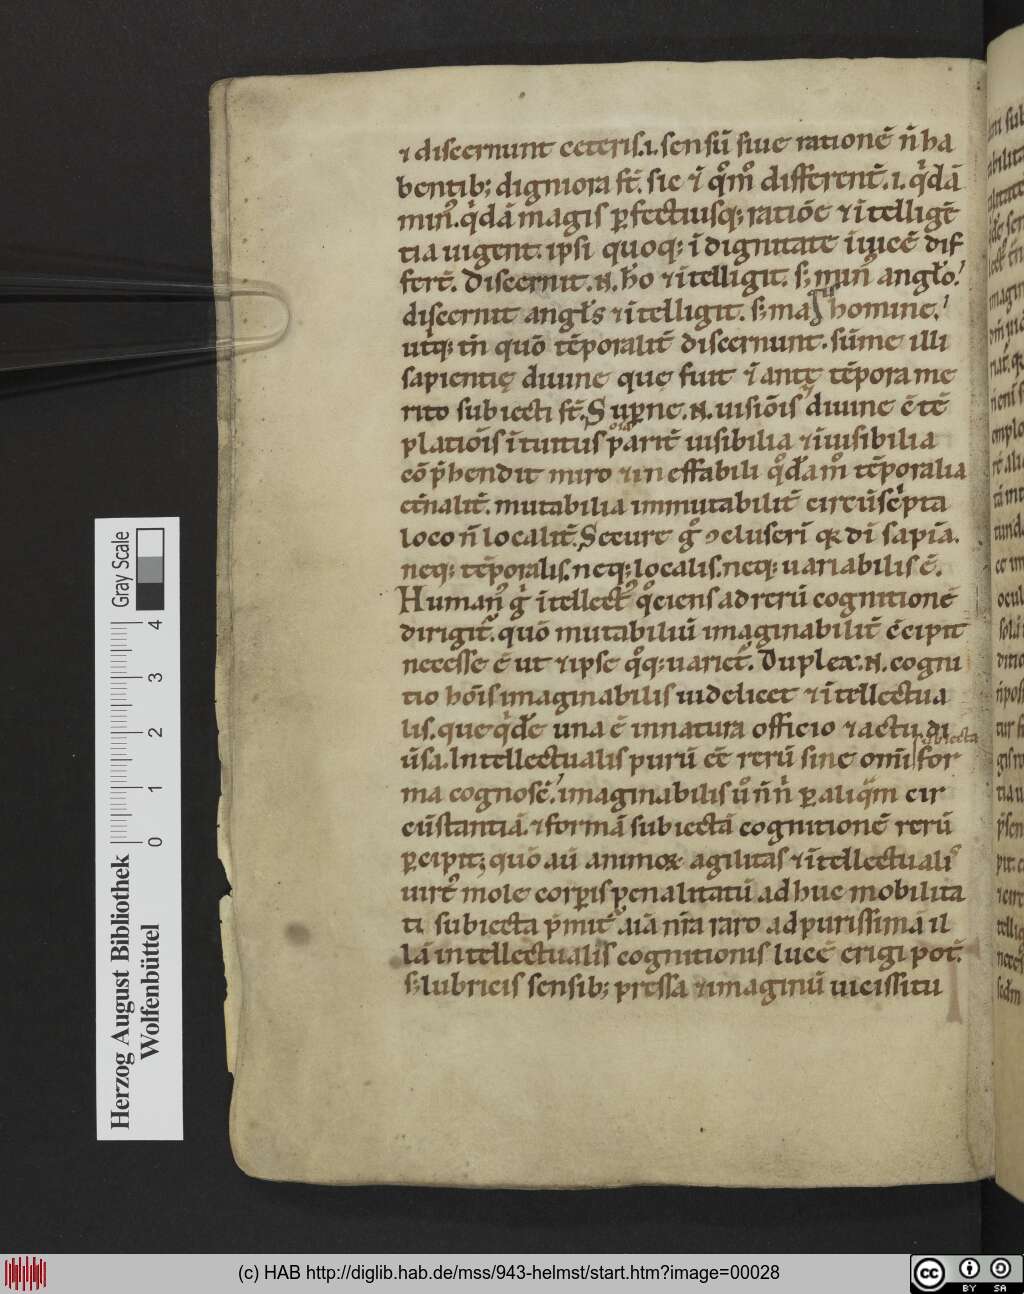 ⁊ discernunt ceteris.i.sensū siue rationē n̄ ha
bentib; digniora st̄. sic ⁊ ī q̊m̊ different̄.i. q̇dā
min᷒.q̇dā magis ꝑfectiusq; ratiōe ⁊ ītelligē
tia uigent. ipsi quoq; ī dignitate īuicē dif
fert̄. Discernit.N.ho ⁊ ītelligit. s; min᷒ angło.
discernit angłs ⁊ ītelligit. s; mag᷒ homine.
utq; tn̄ quō tēporalit̄ discernunt. sūme illi
sapientię diuine que fuit ⁊ antę tēpora me
rito subiecti st̄. Suꝑne.N.uisiōis diuine ētē
platiōis ītuitus parit̄ uisibilia ⁊ īuisibilia
cōp̄hendit miro ⁊ ineffabili q̊dam̊ tēporalia
et̄nalit̄. mutabilia immutabilit̄ circūsc̄pta
loco n̄ localit̄. Secure g̊ ꝯcluserī qꝛ dī sapīa.
neq; tēporalis. neq; localis. neq; uariabilis ē.
Human᷒ g̊ ītellect᷒ q̊ciens ad rerū cognitionē
dirigit̄. quō mutabiliū imaginabilit̄ ēcipit
necesse ē ut ⁊ ipse q̊q; uariet̄. Duplex.N.cogni
tio hōis imaginabilis uidelicet ⁊ ītellectua
lis. que q̇dē una ē in natura officio ⁊ actu di
ūsa. Intellectualis purū eē rerū sine om̄i subiecta for
ma cognosc̄. imaginabilis ů n̄n̄ ꝑ aliq̄m cir
cūstantiā. ⁊ formā subiectā cognitionē rerū
ꝑcipit; quō aū animoꝝ agilitas ⁊ ītellectuali᷒
uirt᷒ mole corꝑis penalitatū adhuc mobilita
ti subiecta p̄mit̄ aīa nr̄a raro ad purissimā il
lā intellectualis cognitionis lucē erigi pot̄.
s; lubricis sensib; pressa ⁊ imaginū uicissitu
Herzog August Bibliothek
Wolfenbüttel
0 1 2 3 4
Gray Scale
(c) HAB http://diglib.hab.de/mss/943-helmst/start.htm?image=00028
cc BY SA